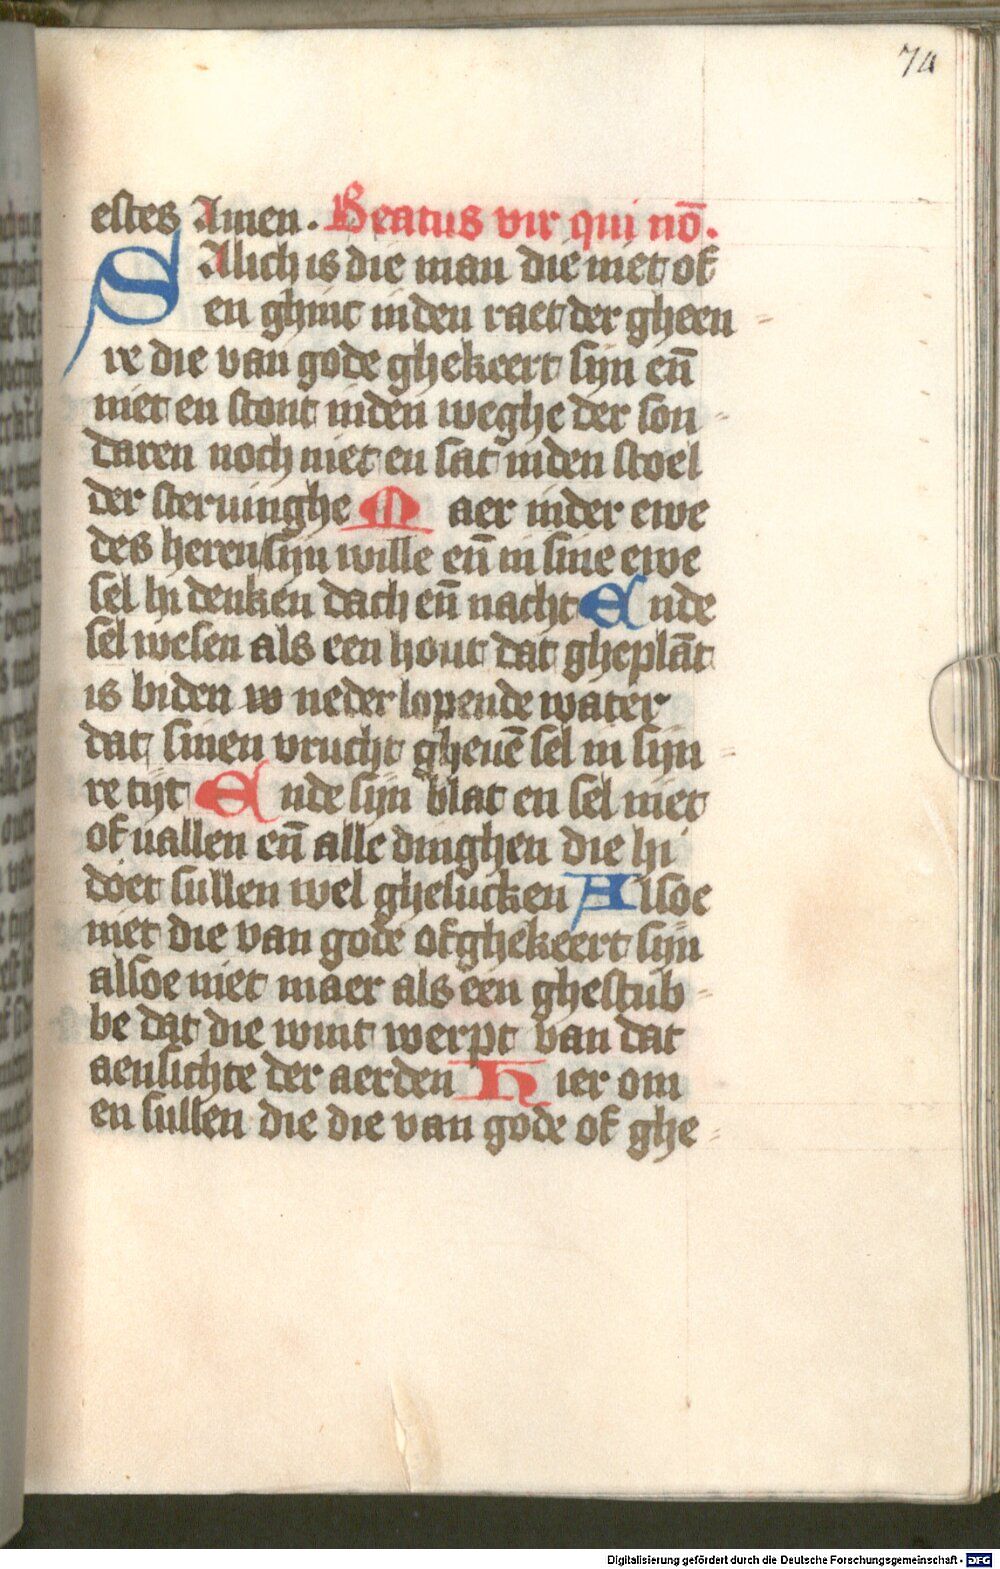 74
estes Amen. Beatus vir qui nō.
SAlich is die man die niet of
en ghinc inden raet der gheen-
re die van gode ghekeert sijn en̄
niet en stont inden weghe der son-
daren noch niet en sat inden stoel
der steruinghe Maer inder ewe
des heren sijn wille en̄ in sine ewe
sel hi denken dach en̄ nacht Ende
sel wesen als een hout dat gheplāt
is biden w neder lopende water
dat sinen vrucht gheuē sel in sijn-
re tijt Ende sijn blat en sel niet
of uallen en̄ alle dinghen die hi
doet sullen wel ghelucken Alsoe
niet die van gode ofghekeert sijn
alsoe niet maer als een ghestub-
be dat die wint werpt van dat
aensichte der aerden Hier om
en sullen die die van gode of ghe-
Digitalisierung gefördert durch die Deutsche Forschungsgemeinschaft - DFG